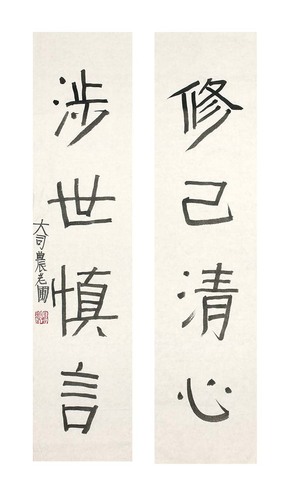 修己清心
涉世慎言
大司農老圃